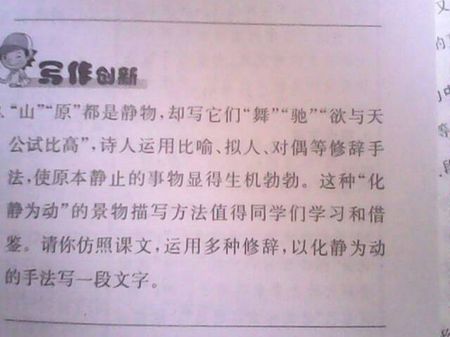 写作创新
“山”“原”都是静物，却写它们“舞”“驰”“欲与天
公试比高”，诗人运用比喻、拟人、对偶等修辞手
法，使原本静止的事物显得生机勃勃。这种“化
静为动”的景物描写方法值得同学们学习和借
鉴。请你仿照课文，运用多种修辞，以化静为动
的手法写一段文字。